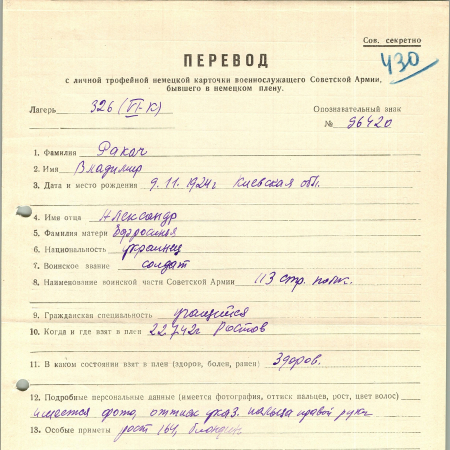 Сов. секретно
430
ПЕРЕВОД
с личной трофейной немецкой карточки военнослужащего Советской Армии,
бывшего в немецком плену.
Лагерь 326 (VI-К) Опознавательный знак
№ 96420
1. Фамилия Ракач
2. Имя Владимир
3. Дата и место рождения 9.11.1924г Киевская обл.
4. Имя отца Александр
5. Фамилия матери
6. Национальность украинец
7. Воинское звание солдат
8. Наименование воинской части Советской Армии 113 стр. полк.
9. Гражданская специальность учащийся
10. Когда и где взят в плен 22.7.42г Ростов
11. В каком состоянии взят в плен (здоров, болен, ранен) Здоров.
12. Подробные персональные данные (имеется фотография, оттиск пальцев, рост, цвет волос)
имеется фото, оттиск указ. пальца правой руки
13. Особые приметы рост 164, блондин